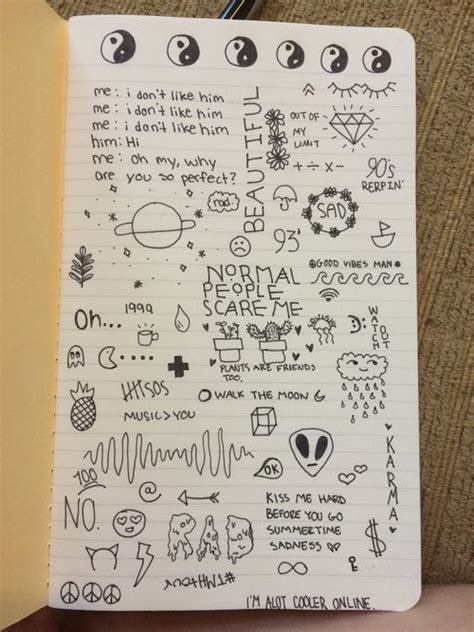 me: i don't like him
me: i don't like him
me: i don't like him
him: Hi
me: oh my, why
are you so perfect?
BEAUTIFUL
OUT OF
MY
LIMIT
+ ÷ × -
90's
RERPIN'
rad
SAD
93'
NORMAL
PEOPLE
SCARE ME
GOOD VIBES MAN
1999
Oh...
WATCH
OUT
PLANTS ARE FRIENDS
TOO.
SOS
WALK THE MOON
MUSIC > YOU
KARMA
100
OK
@
NO.
KISS ME HARD
BEFORE YOU GO
SUMMERTIME
SADNESS
$
#TMHT
I'M ALOT COOLER ONLINE.